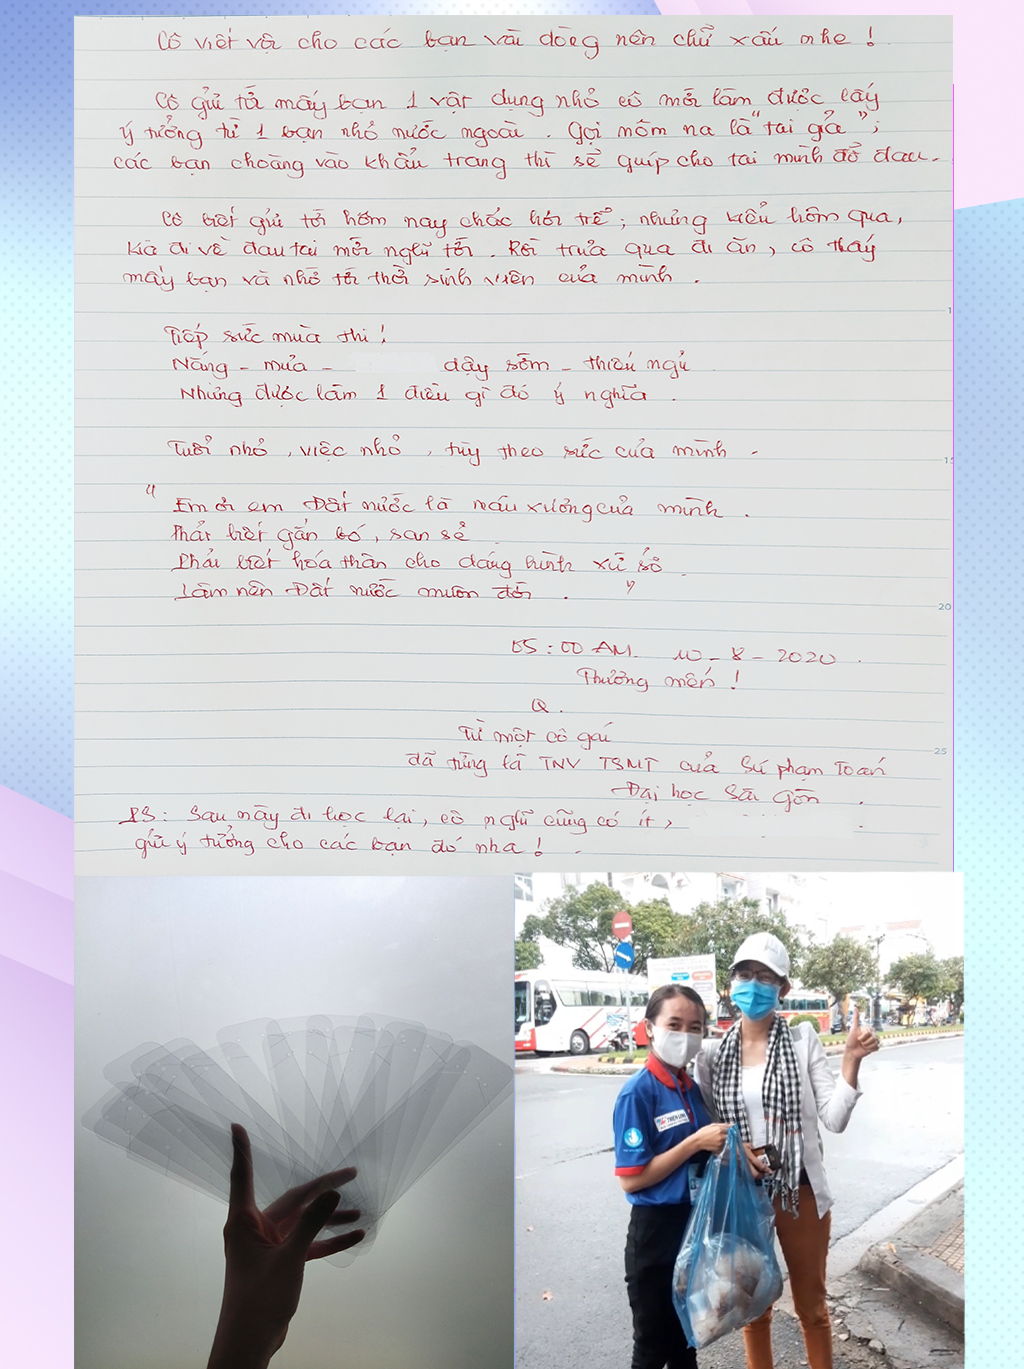 Cô viết vội cho các bạn vài dòng nên chữ xấu nhe !
Cô gửi tới mấy bạn 1 vật dụng nhỏ cô mới làm được lấy
ý tưởng từ 1 bạn nhỏ nước ngoài . Gọi nôm na là "tai giả" ;
các bạn choàng vào khẩu trang thì sẽ giúp cho tai mình đỡ đau .
Cô biết gửi tới hôm nay chắc hơi trễ ; nhưng kiểu hôm qua ,
đi về đau tai mới nghĩ tới . Rồi trưa qua đi ăn , cô thấy
mấy bạn và nhớ tới thời sinh viên của mình .
Tiếp sức mùa thi !
Nắng - mưa - dậy sớm - thiếu ngủ
Nhưng được làm 1 điều gì đó ý nghĩa .
Tuổi nhỏ , việc nhỏ , tùy theo sức của mình .
" Em ơi em Đất nước là máu xương của mình .
Phải biết gắn bó , san sẻ
Phải biết hóa thân cho dáng hình xứ sở
Làm nên Đất nước muôn đời . "
05 : 00 AM 10 - 8 - 2020 .
Thương mến !
Q .
Từ một cô gái
đã từng là TNV TSMT của Sư phạm Toán
Đại học Sài Gòn .
PS : Sau này đi học lại , cô nghĩ cũng có ít ,
gửi ý tưởng cho các bạn đó nha !
THIÊN LONG